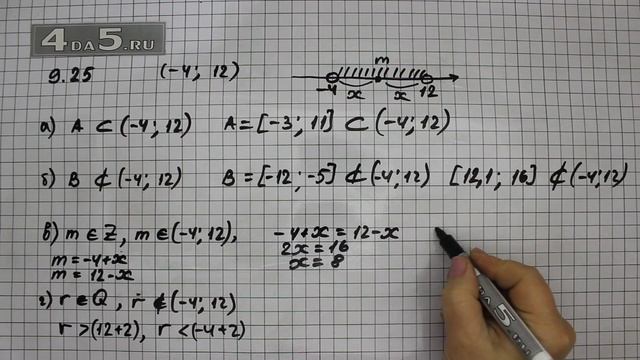 4DA5.RU
9.25 (-4; 12)
m
-4 x x 12
а) A ⊂ (-4; 12) A = [-3; 11] ⊂ (-4; 12)
б) B ⊄ (-4; 12) B = [-12; -5] ⊄ (-4; 12) [12,1; 16] ⊄ (-4; 12)
в) m ∈ Z, m ∈ (-4; 12), -4+x = 12-x
m = -4+x 2x = 16
m = 12-x x = 8
г) r ∈ Q, r ∉ (-4; 12)
r > (12+2), r < (-4+2)
DA5